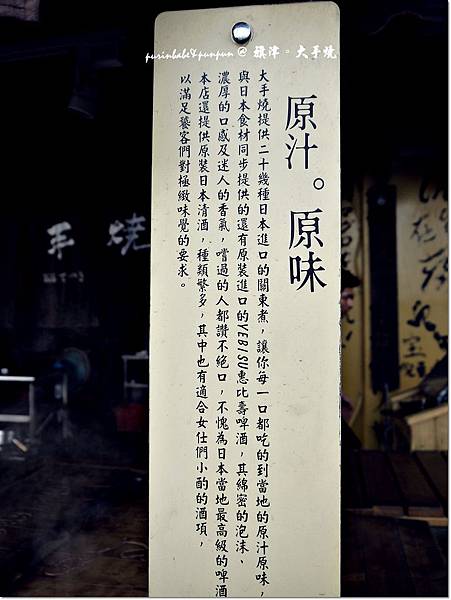 purinbabe&punpun @ 旗津。大手燒
原汁。原味
大手燒提供二十幾種日本進口的關東煮，讓你每一口都吃的到當地的原汁原味，
與日本食材同步提供的還有原裝進口的YEBISU惠比壽啤酒，其綿密的泡沫、
濃厚的口感及迷人的香氣，嚐過的人都讚不絕口，不愧為日本當地最高級的啤酒
本店還提供原裝日本清酒，種類繁多，其中也有適合女仕們小酌的酒項，
以滿足饕客們對極緻味覺的要求。
手燒